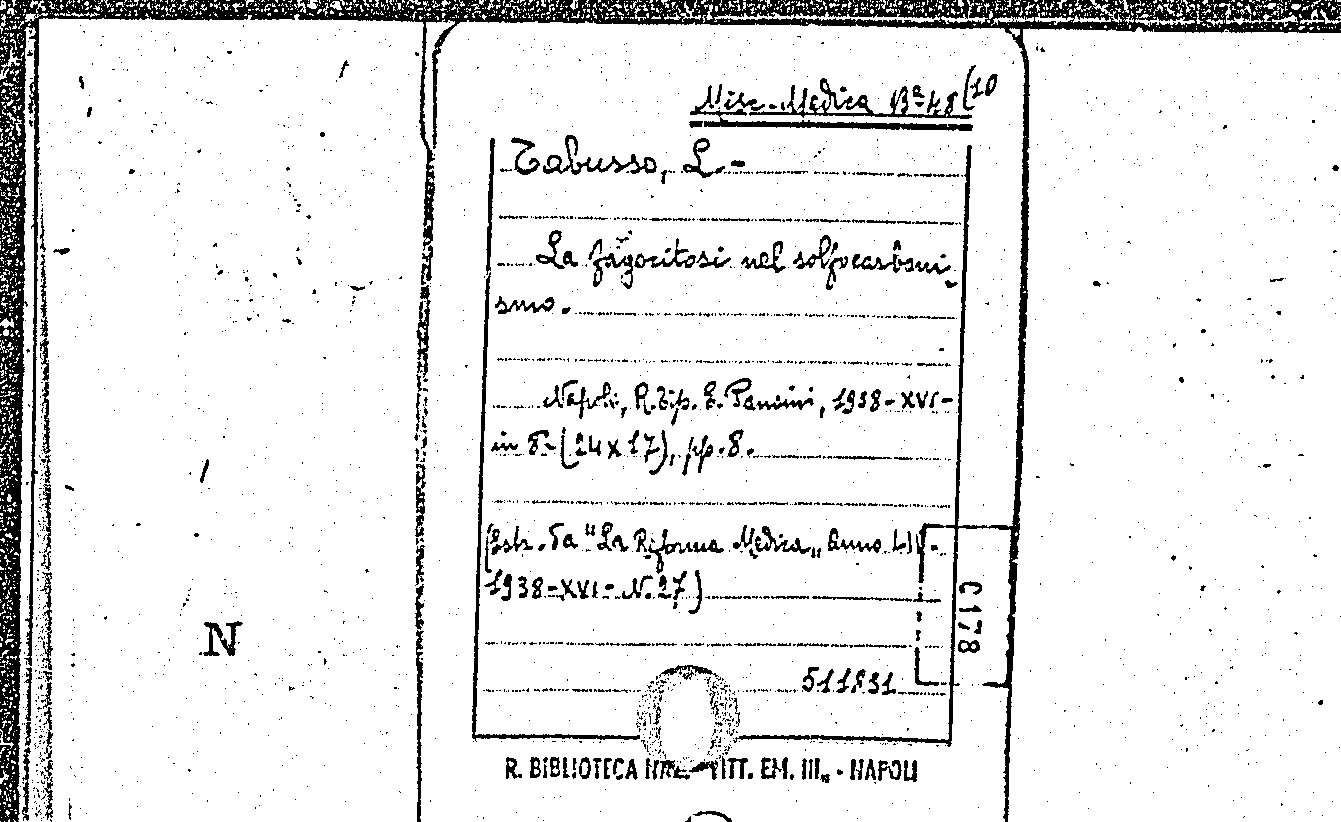 Misc. Medica Bª 48 (10
Tabusso, L.-
La fagocitosi nel solfocarboni-
smo.
Napoli, R. Tip. E. Pansini, 1938-XVI-
in 8º (24 x 17), pp. 8.
(Estr. da "La Riforma Medica„ Anno LIV-
1938-XVI- N. 27)
C178
N
511831
R. BIBLIOTECA VITT. EM. III„ - NAPOLI